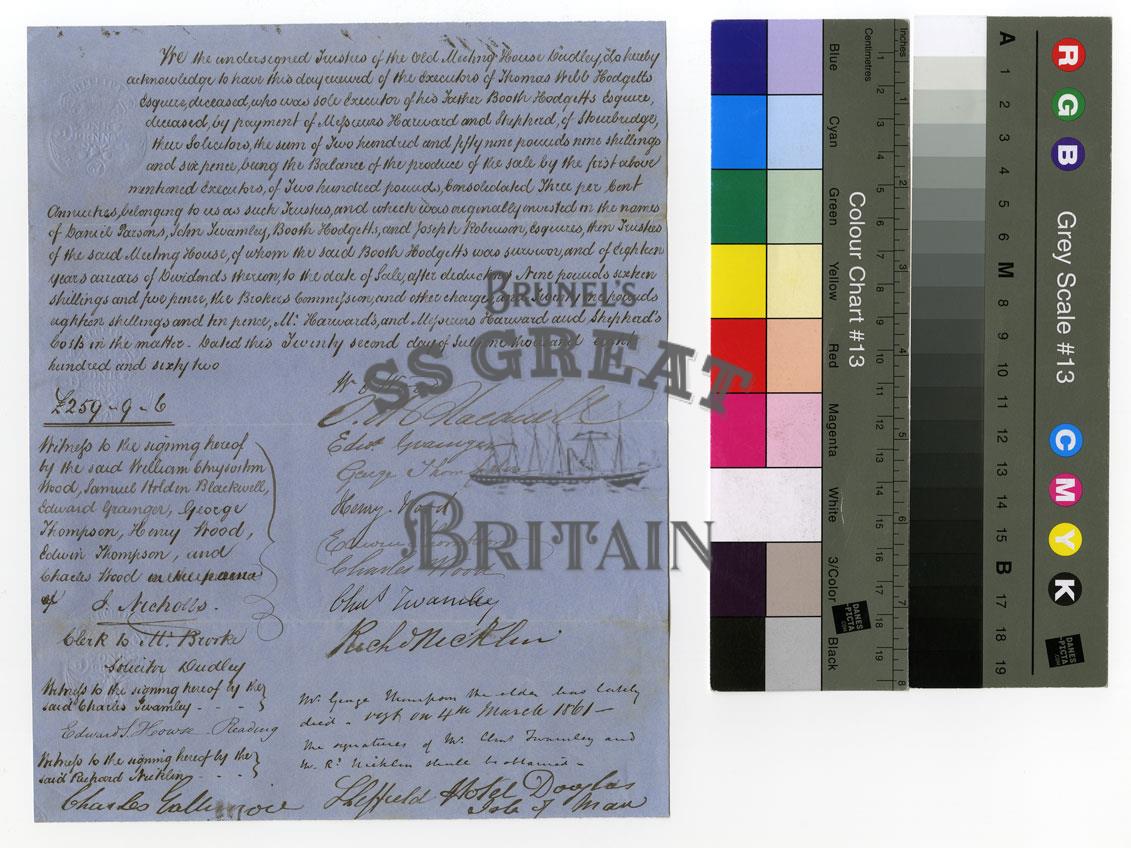 We the undersigned Trustees of the Old Meeting House Dudley, do hereby
acknowledge to have this day received of the Executors of Thomas Webb Hodgetts
Esquire, deceased, who was sole Executor of his Father Booth Hodgetts Esquire,
deceased, by payment of Messieurs Harward and Shepherd, of Stourbridge,
their Solicitors, the sum of Two hundred and fifty nine pounds nine shillings
and six pence, being the Balance of the produce of the sale by the first above
mentioned Executors, of Two hundred pounds, Consolidated Three per Cent
Annuities, belonging to us as such Trustees, and which was originally invested in the names
of Daniel Parsons, John Twamley, Booth Hodgetts, and Joseph Robinson, Esquires, then Trustees
of the said Meeting House, of whom the said Booth Hodgetts was survivor, and of eighteen
years arrears of Dividends thereon, to the date of Sale, after deducting Nine pounds sixteen
shillings and five pence, the Brokers Commission, and other charges, and pounds
eighteen shillings and ten pence, Mr. Harward's, and Messieurs Harward and Shepherd's
Costs in the matter. Dated this Twenty second day of July one thousand eight
hundred and sixty two
£259-9-6
Witness to the signing hereof
by the said William Chrysostom
Wood, Samuel Holden Blackwell,
Edward Grainger, George
Thompson, Henry Wood,
Edwin Thompson, and
Charles Wood in the presence
of J. Nicholls.
Clerk to Mr. Brooke
Solicitor Dudley
Witness to the signing hereof by the
said Charles Twamley - - - -
Edward S. Howse Reading
Witness to the signing hereof by the
said Richard Nicklin - - - -
Charles
S. H. Blackwell
Edwd Grainger
George Thompson
Henry Wood
Edwin Thompson
Charles Wood
Chas Twamley
Richd Nicklin
Mr. George Thompson the elder has lately
died - on 4th March 1861 -
The signatures of Mr. Chas Twamley and
Mr. Rd. Nicklin should be obtained -
Sheffield Hotel Douglas
Isle of Man
BRUNEL'S
SS GREAT
BRITAIN
Colour Chart #13
Blue
Cyan
Green
Yellow
Red
Magenta
White
3/Color
Black
Centimetres
Inches
1 2 3 4 5 6 7 8 9 10 11 12 13 14 15 16 17 18 19
1 2 3 4 5 6 7 8
DANES
-PICTA
.COM
Grey Scale #13
A 1 2 3 4 5 6 M 8 9 10 11 12 13 14 15 B 17 18 19
R
G
B
C
M
Y
K
DANES
-PICTA
.COM